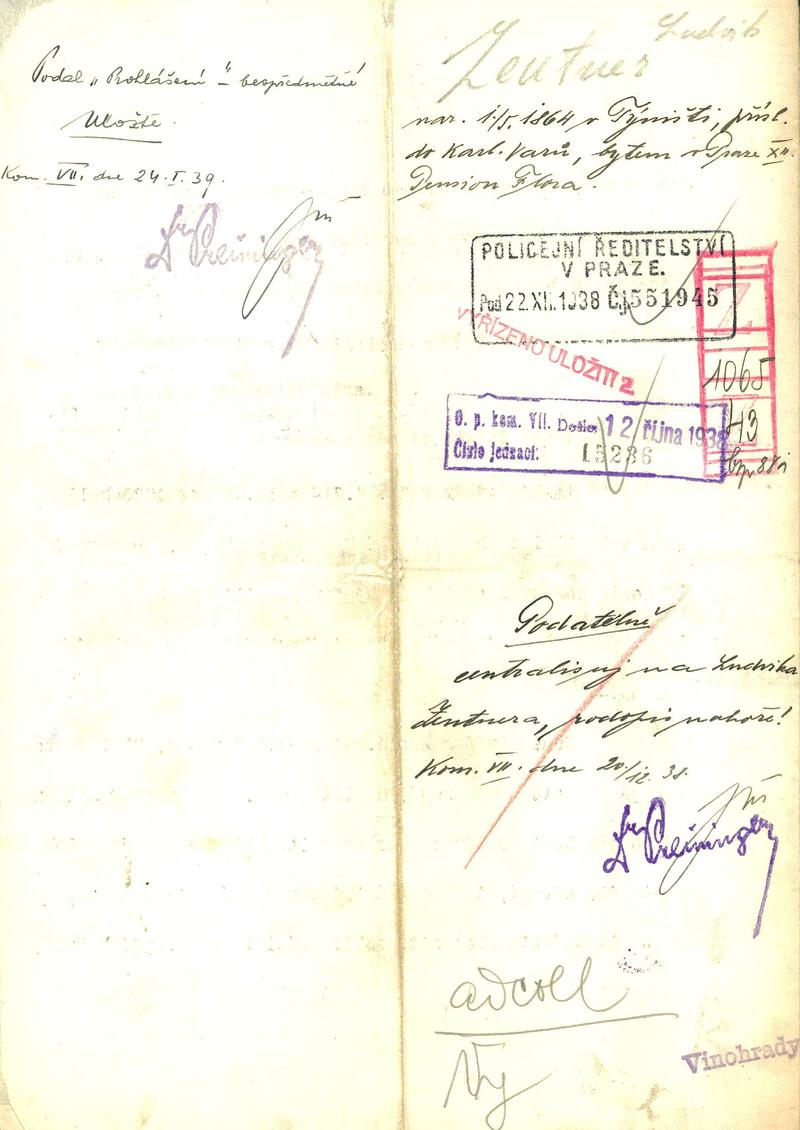 Podal „Prohlášení" – bezpředmětné
Uložte.
Kom. VII. dne 24.I.39.
Dr Preininger
Ludvík
Zentner
nar. 1/5. 1864 v Týništi, přísl.
do Karl. Varů, bytem v Praze XII.
Pension Flora.
POLICEJNÍ ŘEDITELSTVÍ
V PRAZE.
Pod 22.XII.1938 Čj 551945
VYŘÍZENO ULOŽITI 2
Z
1065
43
O. p. kom. VII. Došlo: 12 října 1938
Číslo jednací: 15286
Podatelně
centralisuj na Ludvíka
Zentnera, podopis nahoře!
Kom. VII. dne 20/12. 38.
Dr Preininger
adcoll
Vinohrady